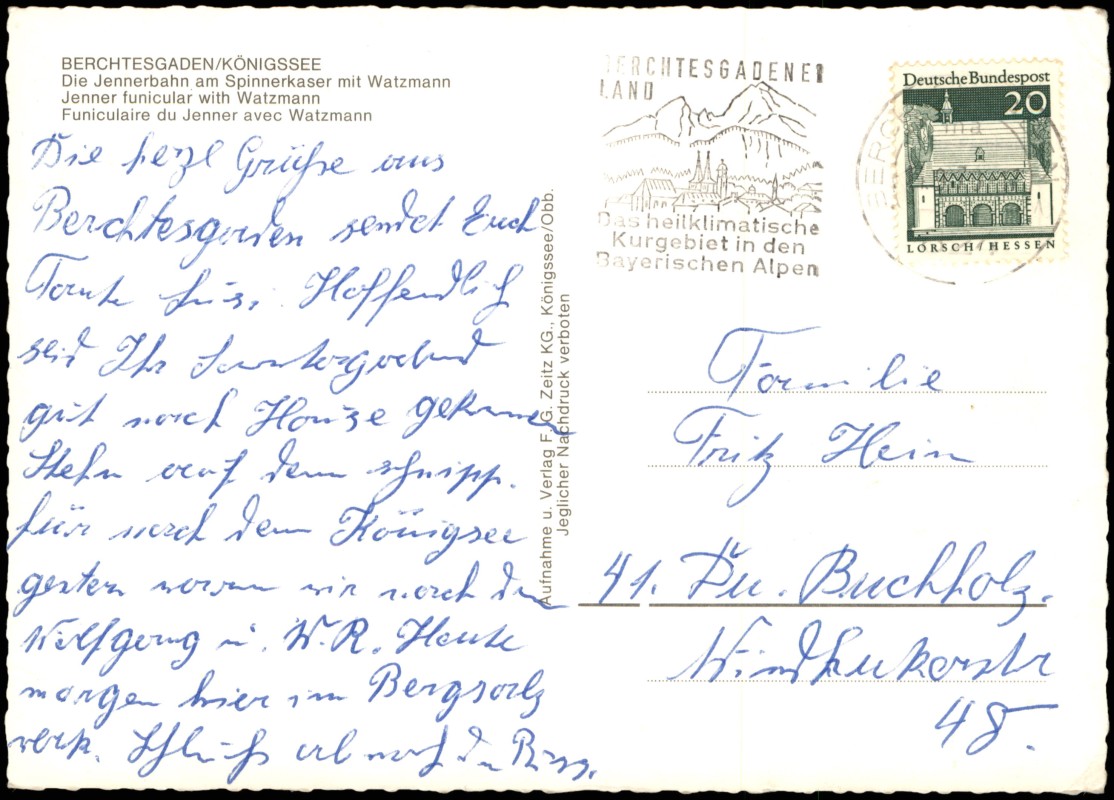 BERCHTESGADEN/KÖNIGSSEE
Die Jennerbahn am Spinnerkaser mit Watzmann
Jenner funicular with Watzmann
Funiculaire du Jenner avec Watzmann
Die herzl Grüße aus
Berchtesgaden sendet Euch
Tante Susi. Hoffendlich
seid Ihr
gut nach Hause gekommen
Stehn auf dem
für nach dem Königsee
gestern waren wir nach dem
Wolfgang u. W.R. Heute
morgen hier im Bergsalz
werk.
Aufnahme u. Verlag F. G. Zeitz KG., Königssee/Obb.
Jeglicher Nachdruck verboten
BERCHTESGADENER
LAND
Das heilklimatische
Kurgebiet in den
Bayerischen Alpen
Deutsche Bundespost
20
LORSCH/HESSEN
BERC
Familie
Fritz Hein
41. Du. Buchholz.
48.